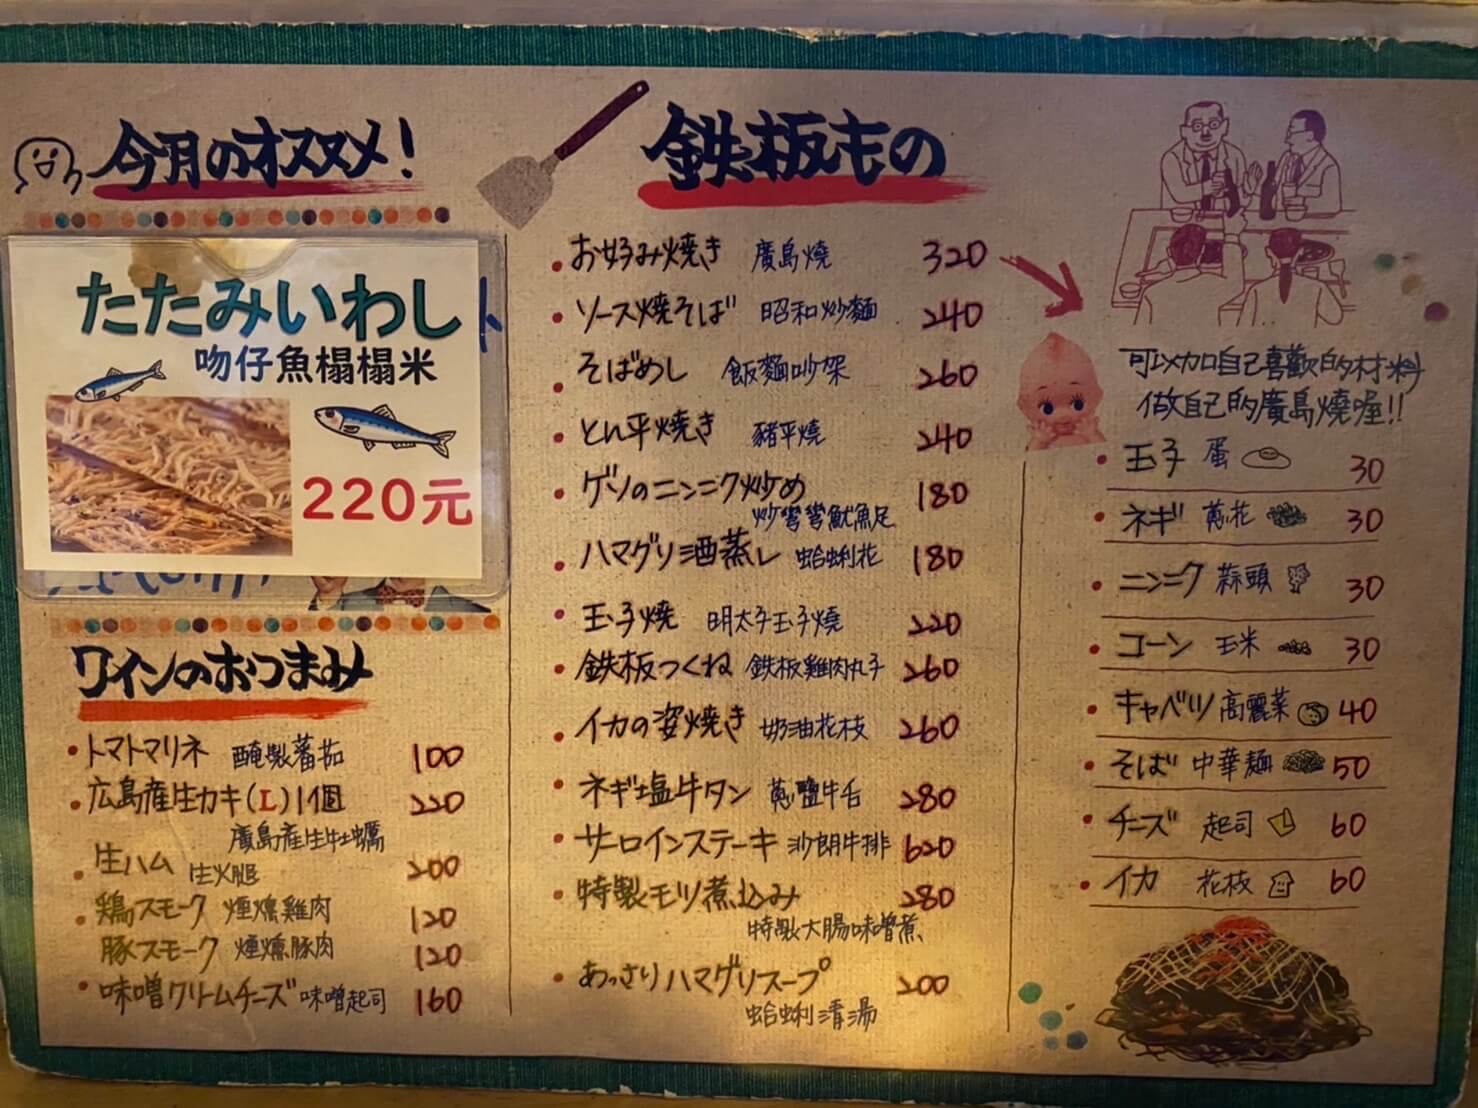 今月のオススメ!
たたみいわし
吻仔魚榻榻米
220元
ワインのおつまみ
トマトマリネ 醃製蕃茄 100
広島産生カキ(L)1個 220
廣島産生牡蠣
生ハム 生火腿 200
鶏スモーク 煙燻雞肉 120
豚スモーク 煙燻豚肉 120
味噌クリームチーズ 味噌起司 160
鉄板もの
お好み焼き 廣島燒 320
ソース焼そば 昭和炒麵 240
そばめし 飯麵吵架 260
とん平焼き 豬平燒 240
ゲソのニンニク炒め 180
炒彎彎魷魚足
ハマグリ酒蒸し 蛤蜊花 180
玉子焼 明太子玉子燒 220
鉄板つくね 鉄板雞肉丸子 260
イカの姿焼き 奶油花枝 260
ネギ塩牛タン 蔥鹽牛舌 280
サーロインステーキ 沙朗牛排 620
特製モツ煮込み 280
特製大腸味噌煮
あっさりハマグリスープ 200
蛤蜊清湯
可以加自己喜歡的材料
做自己的廣島燒喔!!
玉子 蛋 30
ネギ 蔥花 30
ニンニク 蒜頭 30
コーン 玉米 30
キャベツ 高麗菜 40
そば 中華麵 50
チーズ 起司 60
イカ 花枝 60